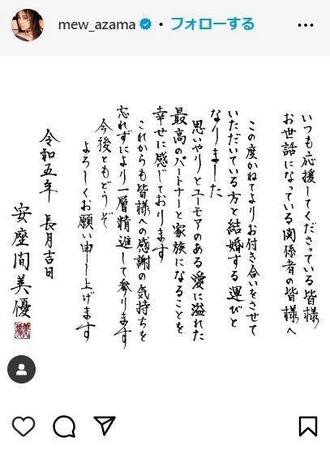 mew_azama
フォローする
いつも応援してくださっている皆様
お世話になっている関係者の皆様へ
この度かねてよりお付き合いをさせて
いただいている方と結婚する運びと
なりました
思いやりとユーモアのある愛に溢れた
最高のパートナーと家族になることを
幸せに感じております
これからも皆様への感謝の気持ちを
忘れずにより一層精進して参ります
今後ともどうぞ
よろしくお願い申し上げます
令和五年 長月吉日
安座間美優